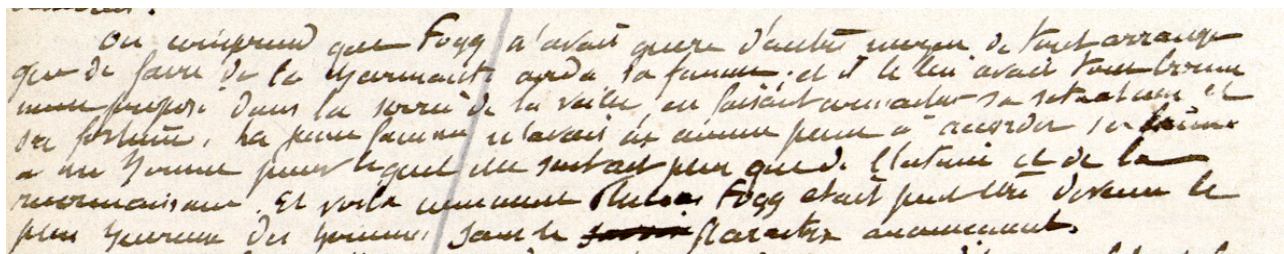 On comprend que Fogg n'avait guère d'autre moyen de tout arranger
que de faire de la charmante Aouda sa femme. et il le lui avait tout bonne
ment proposé dans la soirée de la veille en faisant connaître sa situation et
sa fortune. La jeune femme n'avait eu aucune peine à accorder sa main
à un homme pour lequel elle sentait plus que de l'estime et de la
reconnaissance. Et voilà comment Phileas Fogg était peut être devenu le
plus heureux des hommes sans le paraître aucunement.